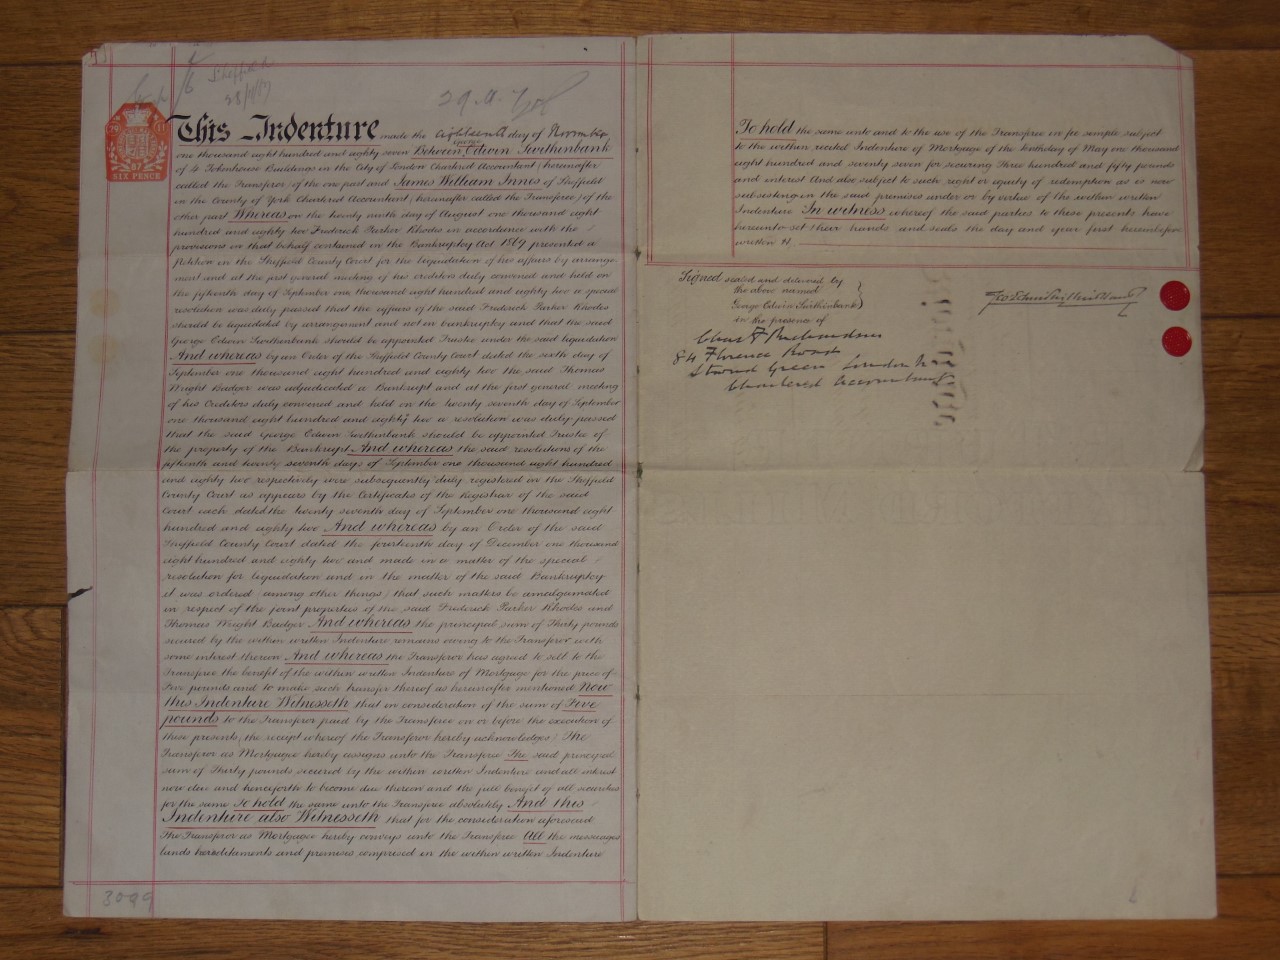 Sheffield
SIX PENCE
This Indenture made the eighteenth day of November
one thousand eight hundred and eighty seven Between George Edwin Swithinbank
of 4 Tokenhouse Buildings in the City of London Chartered Accountant (hereinafter
called the Transferor) of the one part and James William Innes of Sheffield
in the County of York Chartered Accountant (hereinafter called the Transferee) of the
other part Whereas on the twenty ninth day of August one thousand eight
hundred and eighty two Frederick Parker Rhodes in accordance with the
provisions in that behalf contained in the Bankruptcy Act 1869 presented a
Petition in the Sheffield County Court for the liquidation of his affairs by arrange-
ment and at the first general meeting of his creditors duly convened and held on
the fifteenth day of September one thousand eight hundred and eighty two a special
resolution was duly passed that the affairs of the said Frederick Parker Rhodes
should be liquidated by arrangement and not in bankruptcy and that the said
George Edwin Swithenbank should be appointed Trustee under the said liquidation
And whereas by an Order of the Sheffield County Court dated the sixth day of
September one thousand eight hundred and eighty two the said Thomas
Wright Badger was adjudicated a Bankrupt and at the first general meeting
of his Creditors duly convened and held on the twenty seventh day of September
one thousand eight hundred and eighty two a resolution was duly passed
that the said George Edwin Swithenbank should be appointed Trustee of
the property of the Bankrupt And whereas the said resolutions of the
fifteenth and twenty seventh days of September one thousand eight hundred
and eighty two respectively were subsequently duly registered in the Sheffield
County Court as appears by the Certificates of the Registrar of the said
Court each dated the twenty seventh day of September one thousand eight
hundred and eighty two And whereas by an Order of the said
Sheffield County Court dated the fourteenth day of December one thousand
eight hundred and eighty two and made in a matter of the special
resolution for liquidation and in the matter of the said Bankruptcy
it was ordered (among other things) that such matters be amalgamated
in respect of the joint properties of the said Frederick Parker Rhodes and
Thomas Wright Badger And whereas the principal sum of Thirty pounds
secured by the within written Indenture remains owing to the Transferor with
some interest thereon And whereas the Transferor has agreed to sell to the
Transferee the benefit of the within written Indenture of Mortgage for the price of
Five pounds and to make such transfer thereof as hereinafter mentioned Now
this Indenture Witnesseth that in consideration of the sum of Five
pounds to the Transferor paid by the Transferee on or before the execution of
these presents (the receipt whereof the Transferor hereby acknowledges) The
Transferor as Mortgagee hereby assigns unto the Transferee The said principal
sum of Thirty pounds secured by the within written Indenture and all interest
now due and henceforth to become due thereon and the full benefit of all securities
for the same To hold the same unto the Transferee absolutely And this
Indenture also Witnesseth that for the consideration aforesaid
The Transferor as Mortgagee hereby conveys unto the Transferee All the messuages
lands hereditaments and premises comprised in the within written Indenture
3099
To hold the same unto and to the use of the Transferee in fee simple subject
to the within recited Indenture of Mortgage of the birthday of May one thousand
eight hundred and seventy seven for securing Three hundred and fifty pounds
and interest And also subject to such right or equity of redemption as is now
subsisting in the said premises under or by virtue of the within written
Indenture In witness whereof the said parties to these presents have
hereunto set their hands and seals the day and year first hereinbefore
written
Signed sealed and delivered by
the above named
George Edwin Swithinbank
in the presence of
Chas F Richardson
84 Florence Road
Stroud Green London N
Chartered Accountant